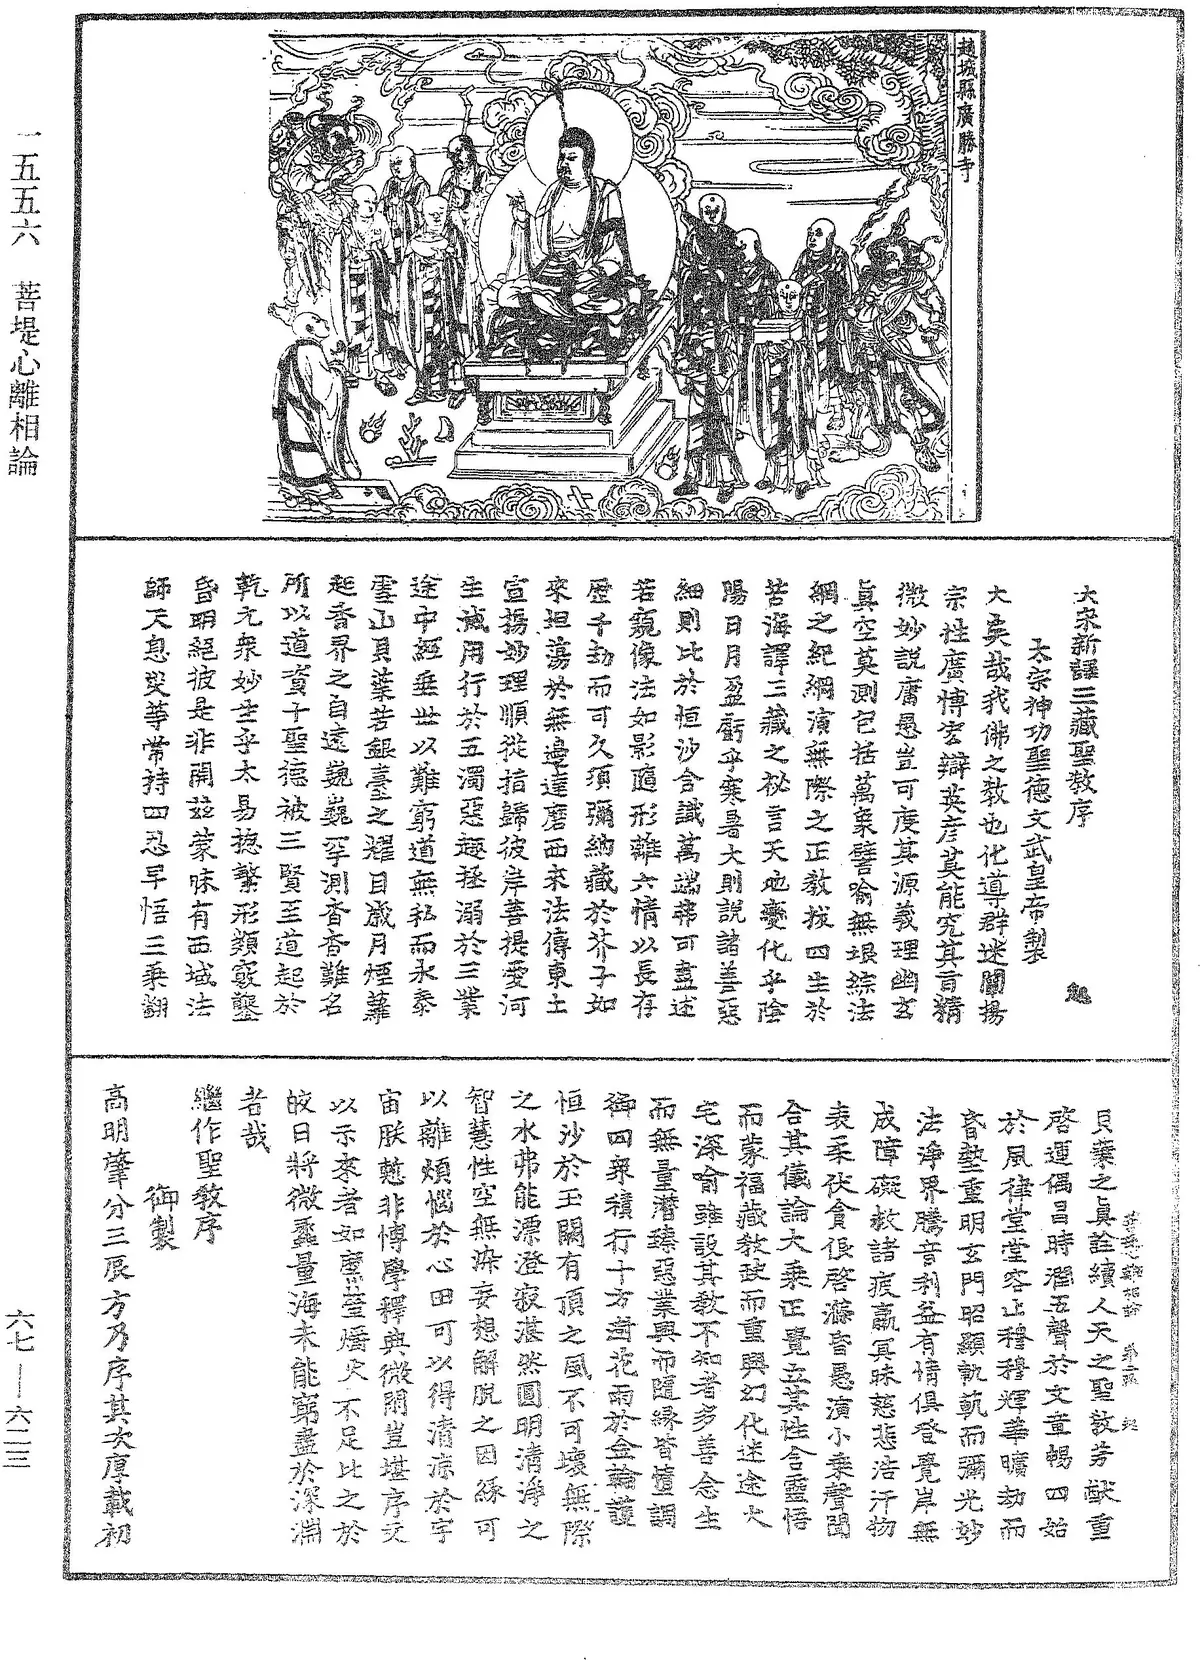 一五五六 菩堤心離相論
趙城縣廣勝寺
大宋新譯三藏聖教序
太宗神功聖德文武皇帝製
大矣哉我佛之教也化導群迷闡揚
宗性廣博宏辯英彥莫能究其旨精
微妙說庸愚豈可度其源義理幽玄
真空莫測包括萬象譬喻無垠綜法
網之紀綱演無際之正教拔四生於
苦海譯三藏之祕言天地變化乎陰
陽日月盈虧乎寒暑大則說諸善惡
細則比於恒沙含識萬端弗可盡述
若窺像法如影隨形離六情以長存
歷千劫而可久須彌納藏於芥子如
來坦蕩於無邊達磨西來法傳東土
宣揚妙理順從指歸彼岸菩提愛河
生滅用行於五濁惡趣拯溺於三業
途中經垂世以難窮道無私而永泰
雪山貝葉若銀臺之耀目歲月煙蘿
起香界之自遠巍巍罕測杳杳難名
所以道資十聖德被三賢至道起於
乾元衆妙生乎太易揔繁形類竅鑿
昏明絕彼是非開茲蒙昧有西域法
師天息災等常持四忍早悟三乘翻
貝葉之真詮續人天之聖教芳猷重
啓運偶昌時潤五聲於文章暢四始
於風律堂堂容止穆穆輝華曠劫而
昏墊重明玄門昭顯軌範而彌光妙
法淨界騰音利益有情俱登覺岸無
成障礙救諸疲羸冥昧慈悲浩汗物
表柔伏貪佷啓滌昏愚演小乘聲聞
合其儀論大乘正覺立其性含靈悟
而蒙福藏教缺而重興幻化迷途火
宅深喻雖設其教不知者多善念生
而無量潛臻惡業興而隨緣皆墮調
御四衆積行十方澍花雨於金輪護
恒沙於玉闕有頂之風不可壞無際
之水弗能漂澄寂湛然圓明清淨之
智慧性空無染妄想解脫之因緣可
以離煩惱於心田可以得清涼於宇
宙朕慙非博學釋典微閑豈堪序文
以示來者如麼螢爝火不足比之於
皎日將微蠡量海未能窮盡於深淵
者哉
繼作聖教序
御製
高明肇分三辰方乃序其次厚載初
六七—六二三